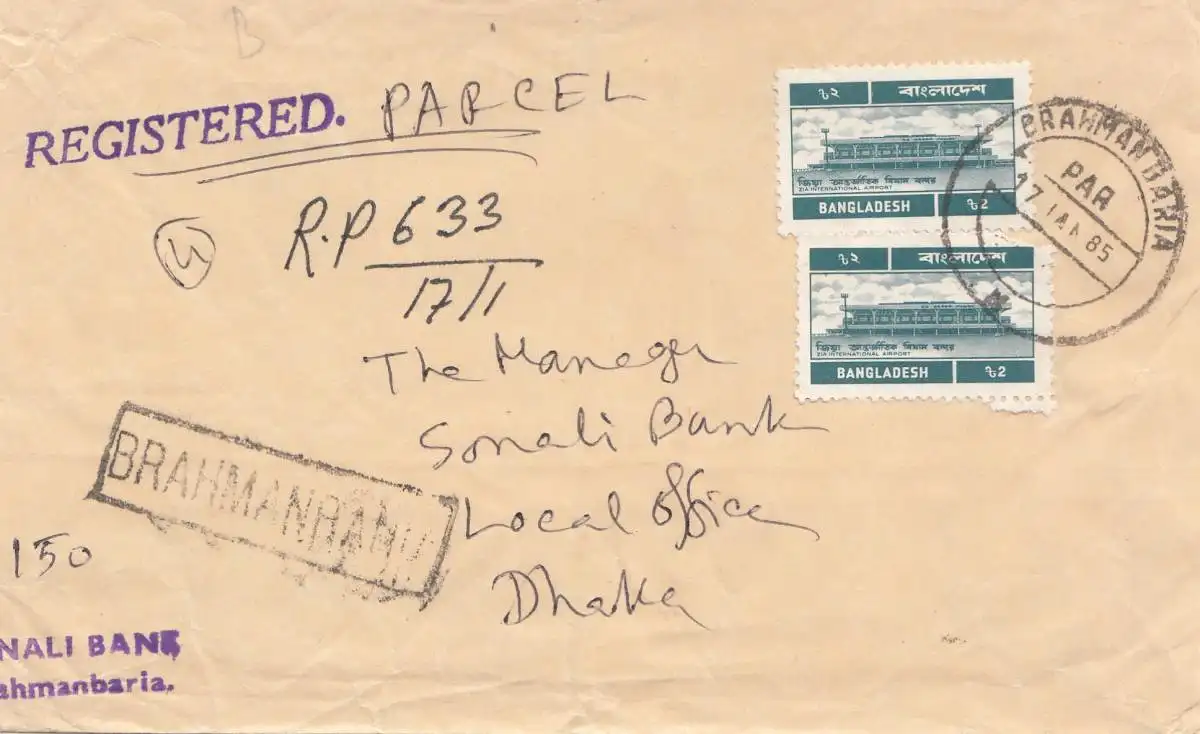 B
REGISTERED. PARCEL
R.P 633
17/1
৳২ বাংলাদেশ
জিয়া আন্তর্জাতিক বিমান বন্দর
ZIA INTERNATIONAL AIRPORT
BANGLADESH ৳2
৳২ বাংলাদেশ
জিয়া আন্তর্জাতিক বিমান বন্দর
ZIA INTERNATIONAL AIRPORT
BANGLADESH ৳2
BRAHMANBARIA
PAR
17 JAN 85
The Manager
Sonali Bank
Local Office
Dhaka
BRAHMANBARIA
150
NALI BANK
ahmanbaria.